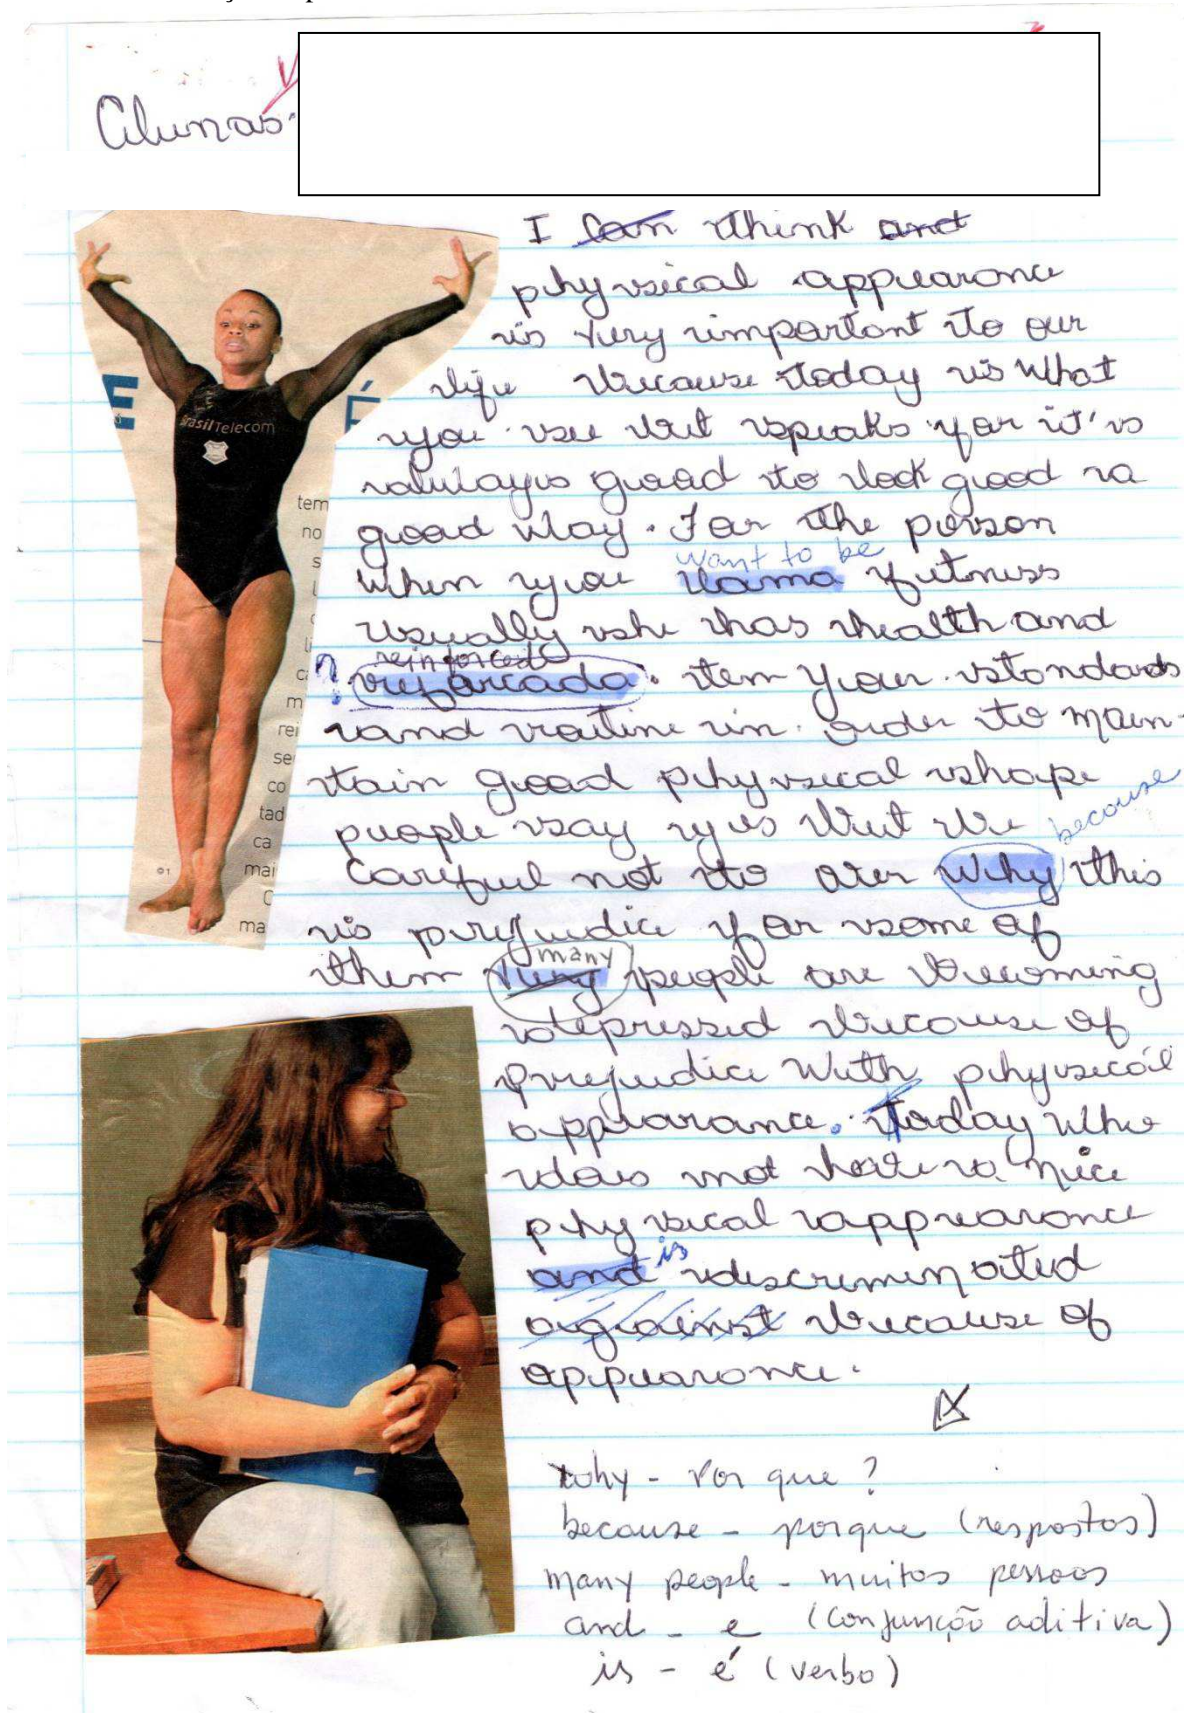 Alunas:
I can think and
physical appearance
is very important to our
life because today is what
you see but speaks for it's
always good to look good a
good way. For the person
want to be
when you fitness
usually she has health and
reinforced
? reforcada. tem your standards
and routine in order to main-
tain good physical shape
people say yes but be
because
careful not to over why this
is prejudice for some of
many
them very people are becoming
depressed because of
prejudice with physical
appearance. Today who
does not have a nice
physical appearance
is
and discriminated
against because of
appearance.
why - Por que?
because - porque (respostas)
many people - muitas pessoas
and - e (conjunção aditiva)
is - é (verbo)
E
É
BrasilTelecom
tem
no
s
li
m
rei
se
co
tad
ca
mai
C
ma